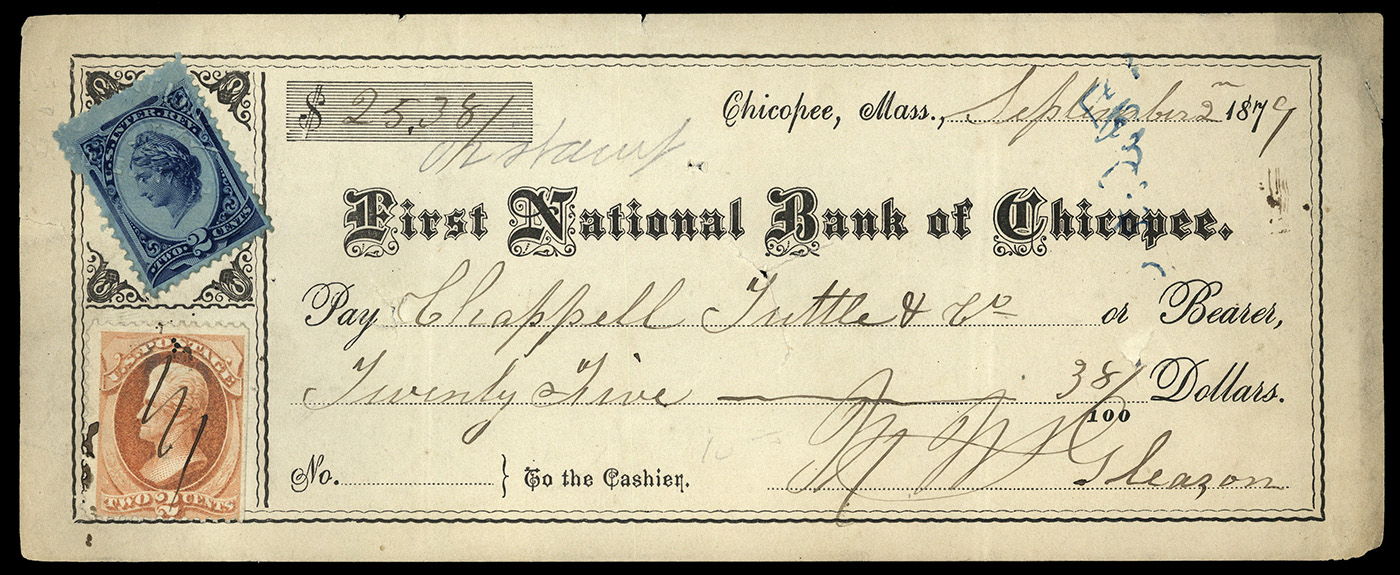 $ 25.38/
Chicopee, Mass., September 2n 1879
First National Bank of Chicopee.
Pay Chappell Tuttle & Co or Bearer,
Twenty Five 38/100 Dollars.
No. } To the Cashier. Gleazon
U.S. INTER. REV.
TWO 2 CENTS
U.S. POSTAGE
TWO 2 CENTS